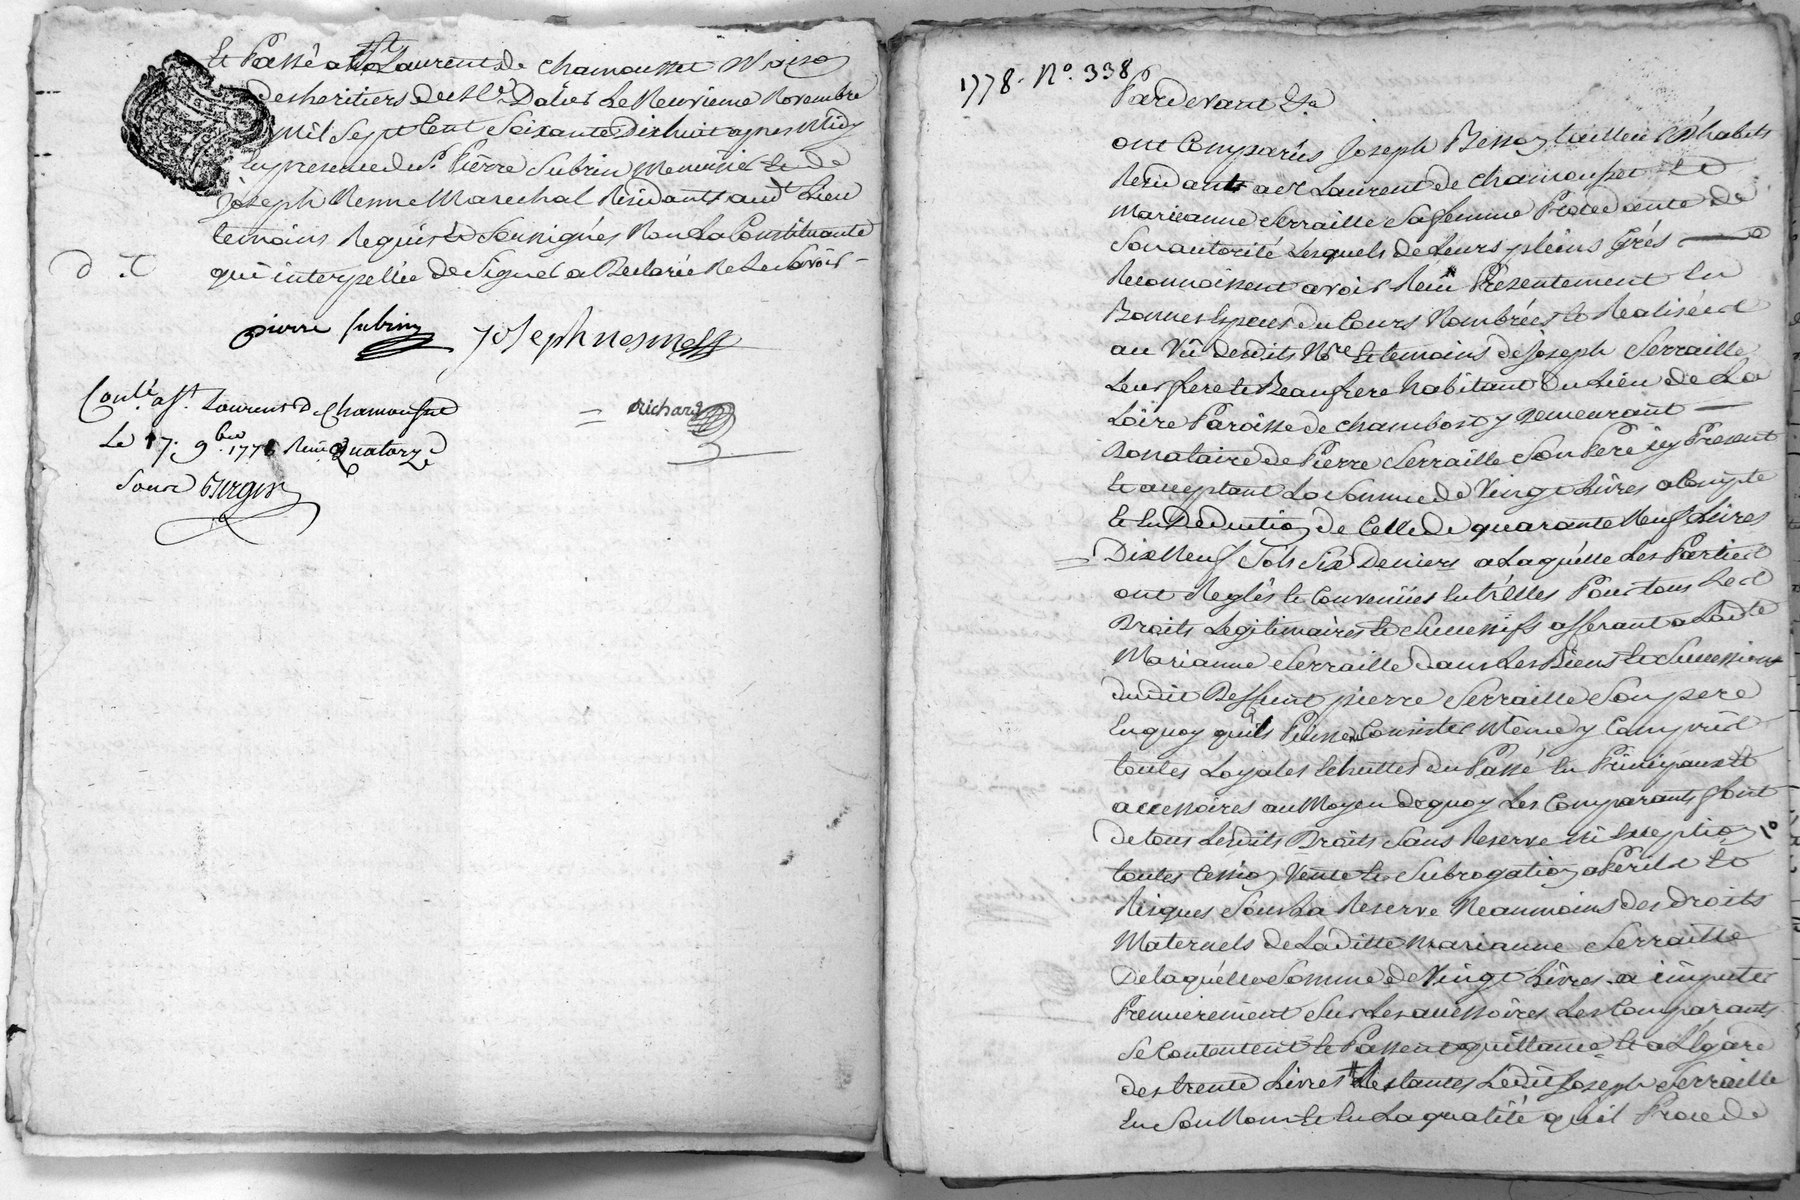 et Passé a St Laurent de Chamousset Maison
des heritiers de Sr Dalier Le Neuvieme Novembre
mil Sept Cent Soixante Dix huit apres Midy
En presence du Sr Pierre Subrin Menuisier et de
Joseph Nesme Marechal Residants audt Lieu
temoins Requis et Soussignés Non La Constituante
qui interpellée de Signer a Declarée ne Le Savoir
D. T.
pierre subrin Joseph nesme
Conlé a St Laurent de Chamousset
Le 17. 9bre 1778 Reçu Quatorze
Sous
Richard
1778. No. 338
Pardevant &a
ont Comparûs Joseph Besson tailleur D'habits
Residants a St Laurent de Chamousset et
Marieanne Serraille Sa femme Procedante de
Son autorité Lesquels de Leurs pleins Grés
Reconnoissent avoir Reçu Presentement En
Bonnes Especes du Cours Nombrées et Realisées
au Vû desdits Nre et temoins de Joseph Serraille
Leur frere et Beaufrere habitant du Lieu de La
Loire Paroisse de Chambost y Demeurant
Donataire de Pierre Serraille Son Pere icy Present
et acceptant La Somme de Vingt Livres a Compte
et En Deduction de Celle de quarante Neuf Livres
Dix Neuf Sols Six Deniers a Laquelle Les Parties
ont Reglés et Convenües Entr'Elles Pour tous Les
Droits Legitimaires et Successifs afferant a Ladte
Marianne Serraille dans Les Biens et Successions
dudit Deffunt pierre Serraille Son pere
En quoy qu'ils Puissent Consister Même y Compris
toutes Loyales Echuttes du Passé En Principaux et
accessoires au Moyen de quoy Les Comparants font
de tous Lesdits Droits Sans Reserve ni Exception
toutes Cession Vente et Subrogation a Perils et
Risques Sous La Reserve Neanmoins des droits
Maternels de Laditte Marianne Serraille
De laquelle Somme de Vingt Livres a imputer
Premierement Sur Les accessoires Les Comparants
Se Contentent et Passent quittance et a L'Egard
des trente Livres Restantes Ledit Joseph Serraille
En Son Nom et En La qualité qu'il Procede